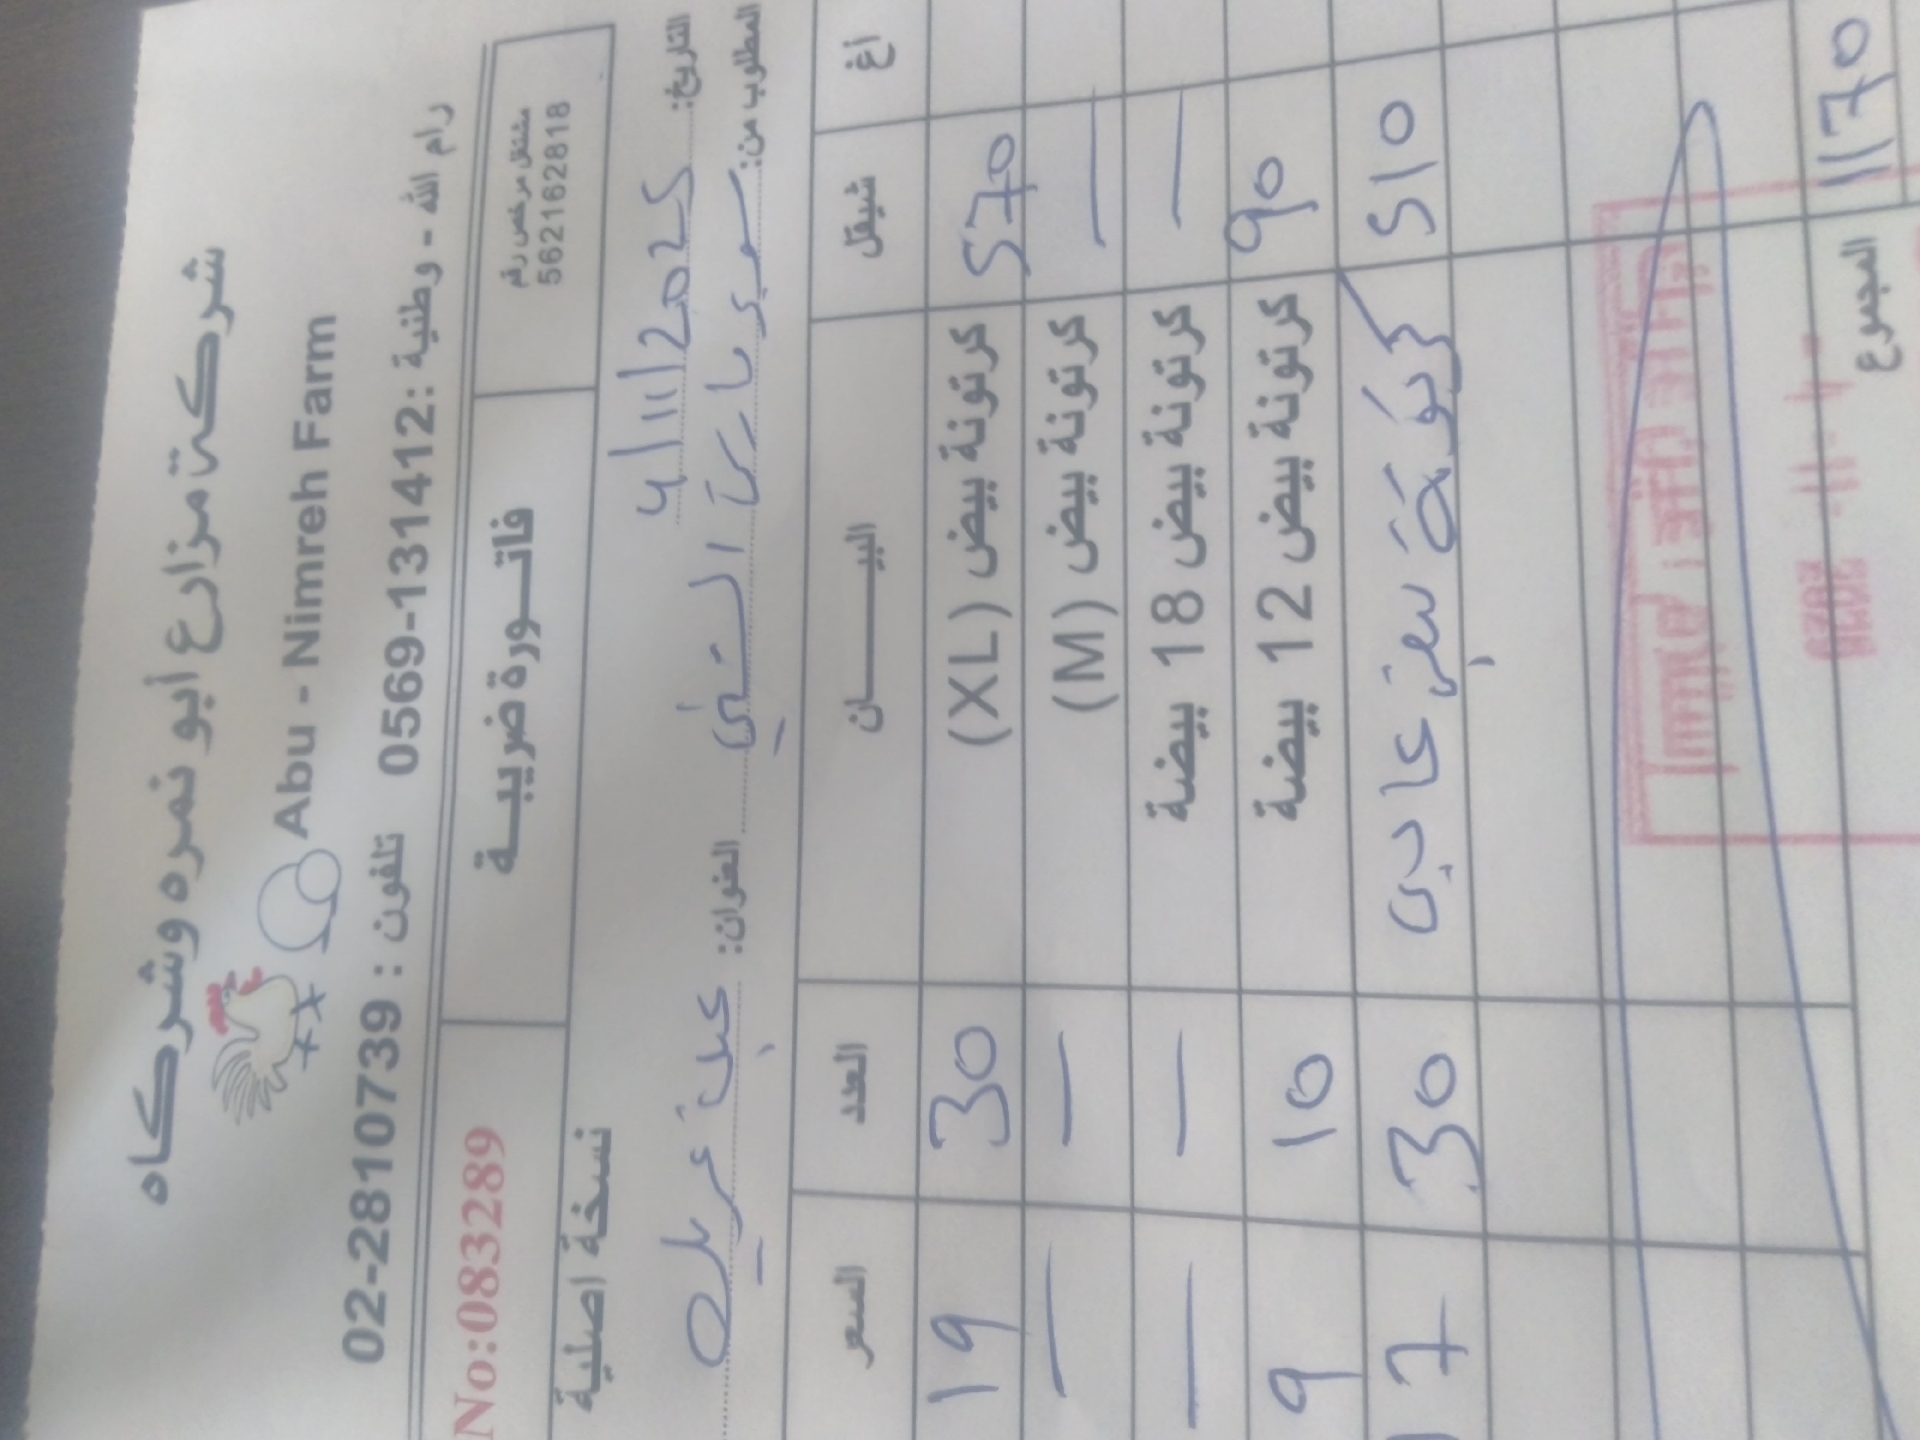 شركة مزارع أبو نمره وشركاه
Abu - Nimreh Farm
رام الله - وطنية : 0569-131412 تلفون : 02-2810739
مشتغل مرخص رقم
562162818
فاتورة ضريبية
No:083289
نسخة اصلية
التاريخ: 4/11/2025
المطلوب من: سوبر ماركت العنوان:
أغ شيقل البيان العدد السعر
570 كرتونة بيض (XL) 30 19
— كرتونة بيض (M) — —
— كرتونة بيض 18 بيضة — —
90 كرتونة بيض 12 بيضة 10 9
510 كرتونة بيض عادي 30 17
المجموع 1170